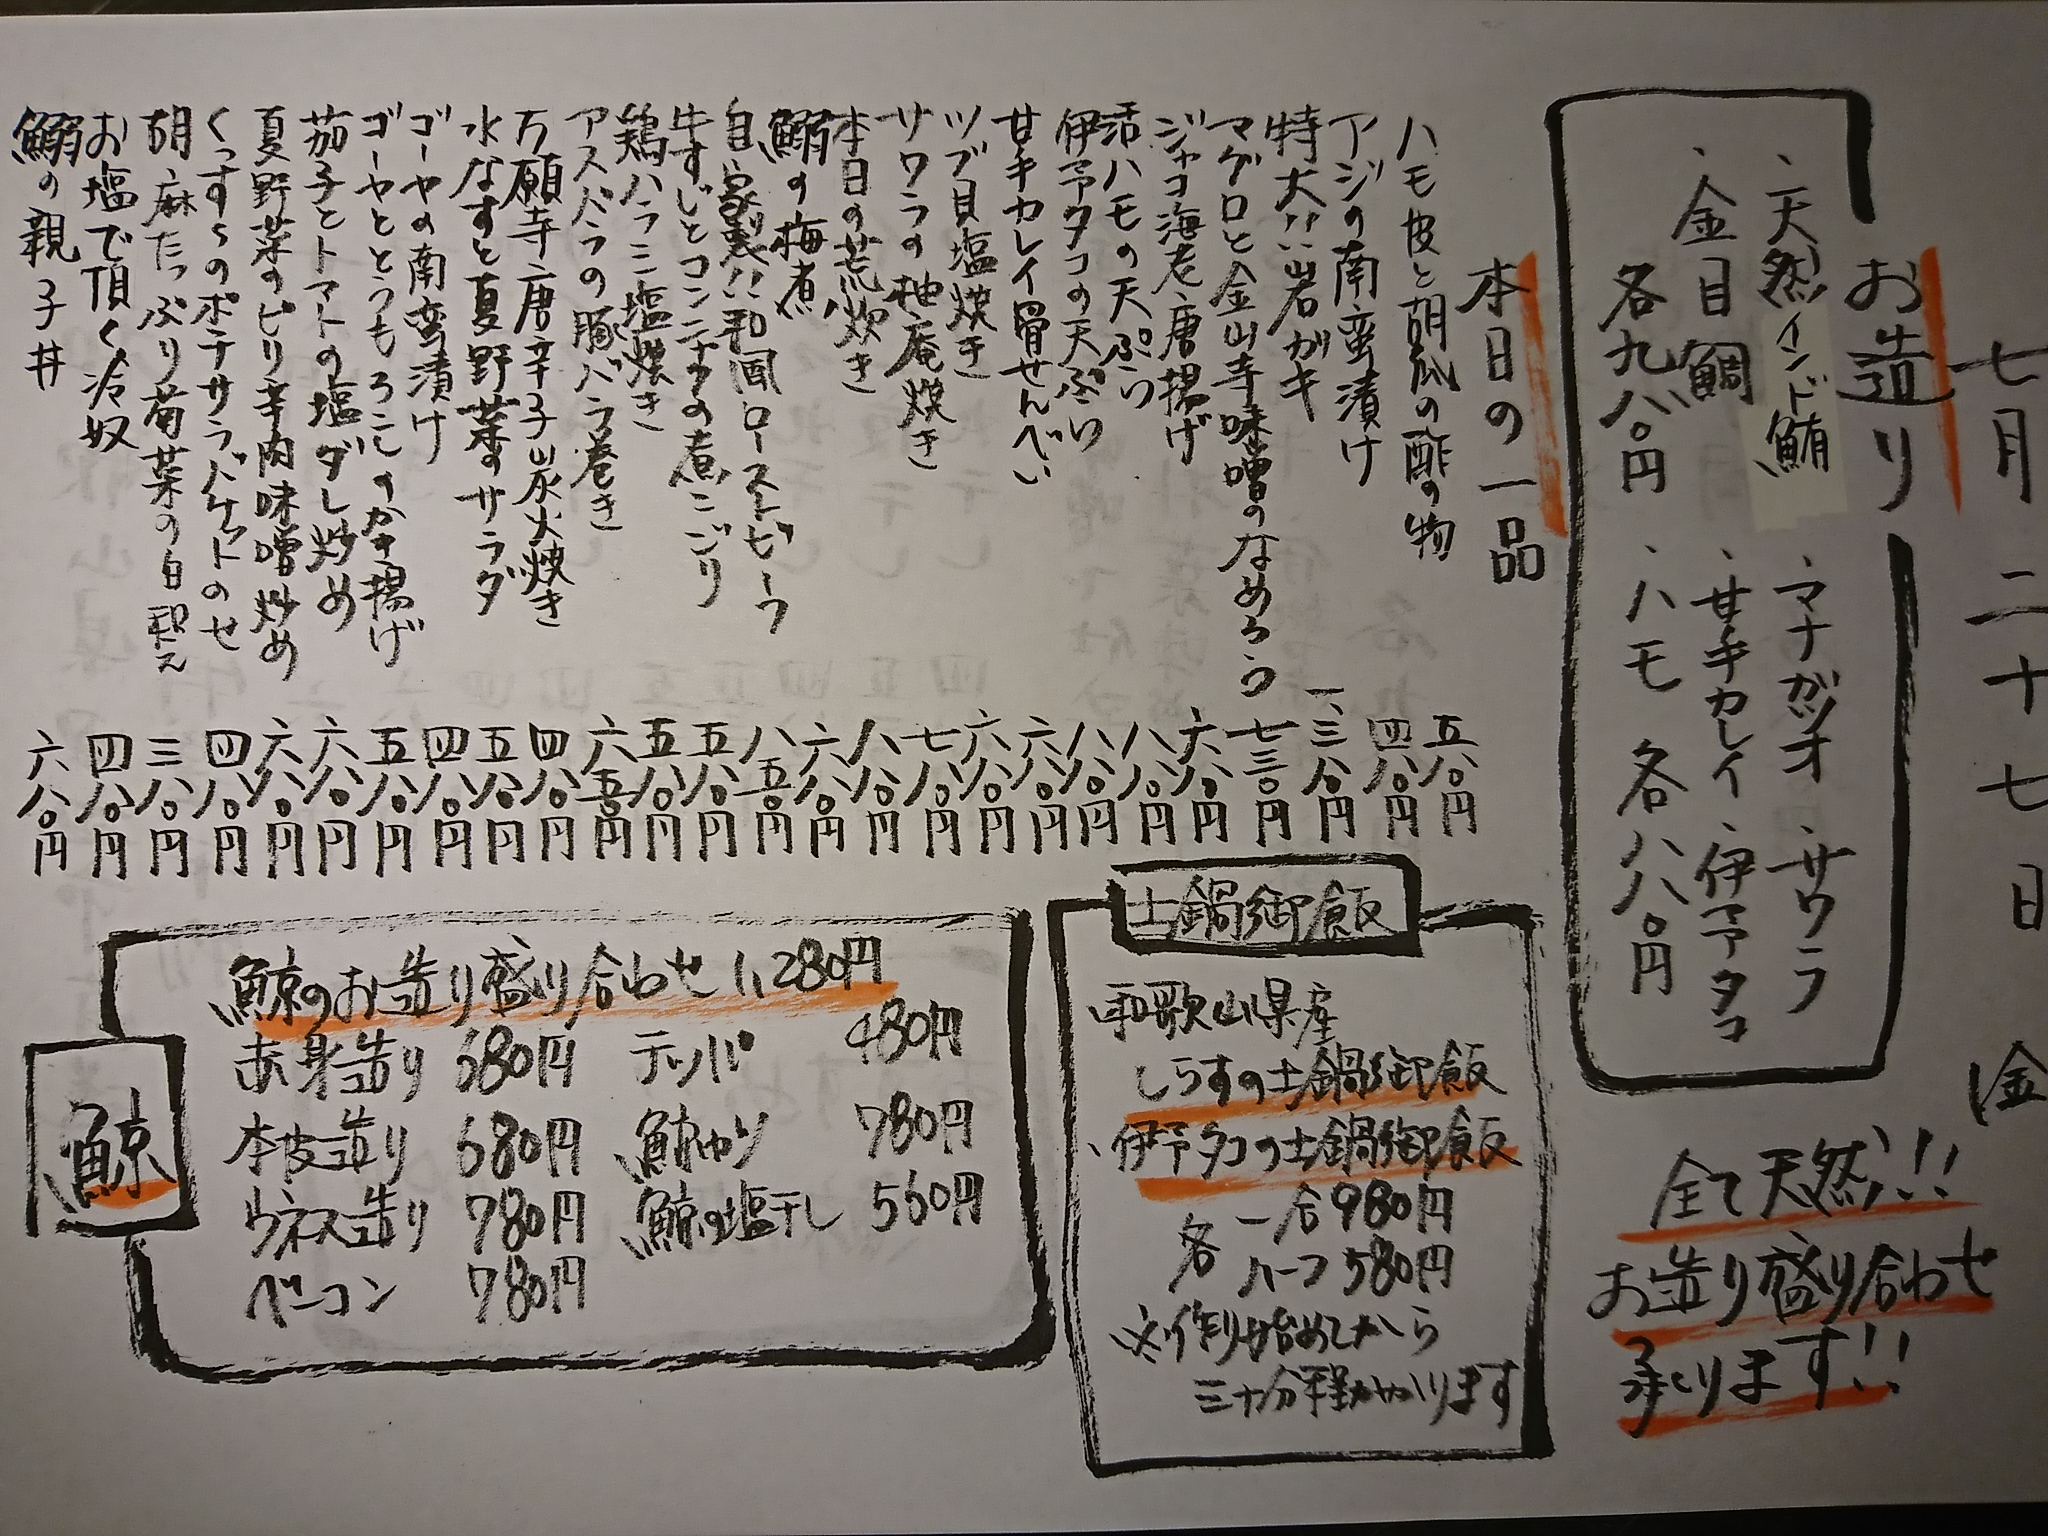 七月二十七日(金
お造り
・天然インド鮪 ・マナガツオ ・サワラ
・金目鯛 ・甘手カレイ ・伊予タコ
各九八〇円 ・ハモ 各八八〇円
全て天然!!
お造り盛り合わせ
承ります!!
本日の一品
ハモ皮と胡瓜の酢の物 五八〇円
アジの南蛮漬け 四八〇円
特大!!岩ガキ 一、三八〇円
マグロと金山寺味噌のなめろう 七三〇円
ジャコ海老唐揚げ 六八〇円
活ハモの天ぷら 八八〇円
伊予タコの天ぷら 八八〇円
甘手カレイ骨せんべい 六八〇円
ツブ貝塩焼き 六八〇円
サワラの柚庵焼き 七八〇円
本日の荒炊き 八八〇円
鰯の梅煮 六八〇円
自家製!!和風ローストビーフ 八五〇円
牛すじとコンニャクの煮こごり 五八〇円
鶏ハラミ塩焼き 五八〇円
アスパラの豚バラ巻き 六五〇円
万願寺唐辛子炭火焼き 四八〇円
水なすと夏野菜のサラダ 五八〇円
ゴーヤの南蛮漬け 四八〇円
ゴーヤととうもろこしのかき揚げ 五八〇円
茄子とトマトの塩ダレ炒め 六八〇円
夏野菜のピリ辛肉味噌炒め 六八〇円
のポテサラバケットのせ 四八〇円
胡麻たっぷり菊菜の白和え 三八〇円
お塩で頂く冷奴 四八〇円
鰯の親子丼 六八〇円
土鍋御飯
和歌山県産
しらすの土鍋御飯
・伊予タコの土鍋御飯
各 一合980円
ハーフ580円
※作り始めてから
三十分程かかります
鯨
鯨のお造り盛り合わせ 1,280円
赤身造り 680円 テッパ 480円
本皮造り 680円 鯨カツ 780円
ウネス造り 780円 鯨の塩干し 560円
ベーコン 780円